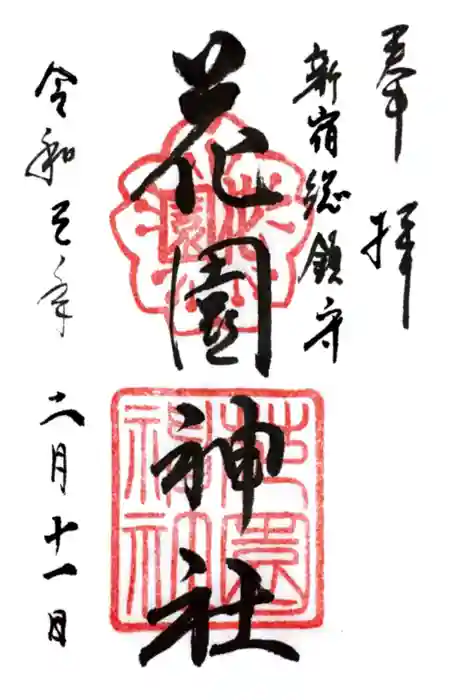 奉拝
新宿総鎮守
花園神社
令和元年 六月十一日
花園
花園
神社